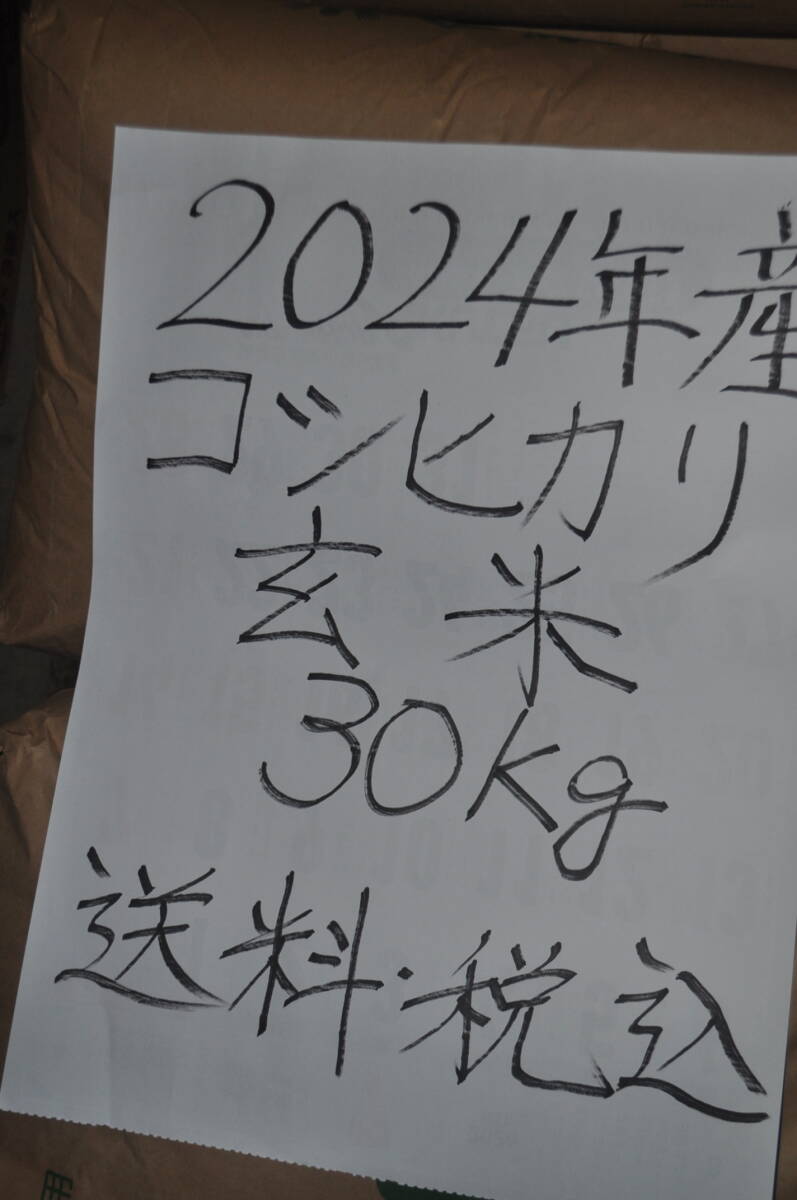 2024年産
コシヒカリ
玄米
30kg
送料・税込